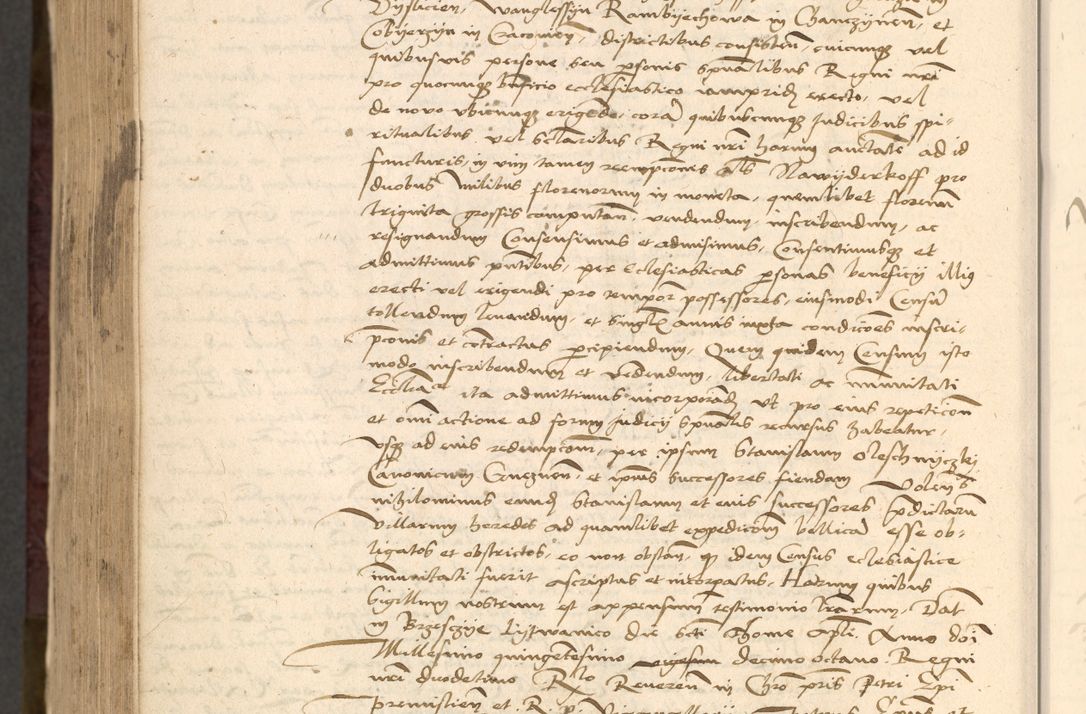 Dyslicien, Wanglessyn Rambyechowa in Chanczynen, et
Cobyerzyn in Cracovien, districtibus consisten, cuicumq vel
quibusvis persone seu psonis spualibus Regni nri
pro quocumq bnficio ecclesiastico iampridz erecto, vel
de novo ubicumq erigendo, cora quibuscumq Judicibus spi-
ritualibus vel seclaribus Regni nri harum auctate ad id
functuris, in vim tamen reempcones als Nawyderkoff pro
duobus milibus florenorum in moneta, quemlibet florenu
triginta grossis computan, vendendum, inscribendum, ac
resignandum Consensimus et admisimus, Consentimusq et
admittimus pntibus, per Ecclesiasticas psonas beneficij illius
erecti vel erigendi pro tempor possessores, eiusmodi Censu
tollendum levandum, et singlis annis iuxta condicoes inscri-
pconis et contractus pcipiendum, Quem quidem Censum isto
modo inscribendum et vendendum, libertati ac immunitati
Eccliae ita admittimus incorporadz Ut pro eius repeticon
et omi actione ad forum Judicij spualis recursus habeatur,
usq ad eius redempcom, per ipsum Stanislaum Oleschnyczkj
Canonicum Gneznen, et ipius successores fiendam Volens
nihilominus eundz Stanislaum et eius successores pdictaru
Villarum heredes ad quamlibet expedicom bellica esse ob-
ligatos et obstrictos, eo non obstan, q idem Census ecclesiastice
immunitati fuerit ascriptus et incorpatus, Harum quibus
Sigillum nostrum est appensum testimonio lrarum, Dat
in Brzesczye Lytwanico die scti Thome Apli Anno doi
Millesimo quingentesimo decimo octavo Regni
nri duodecimo Rlo Reveren in Chro pris Petri Epi
Premislien et R. P.